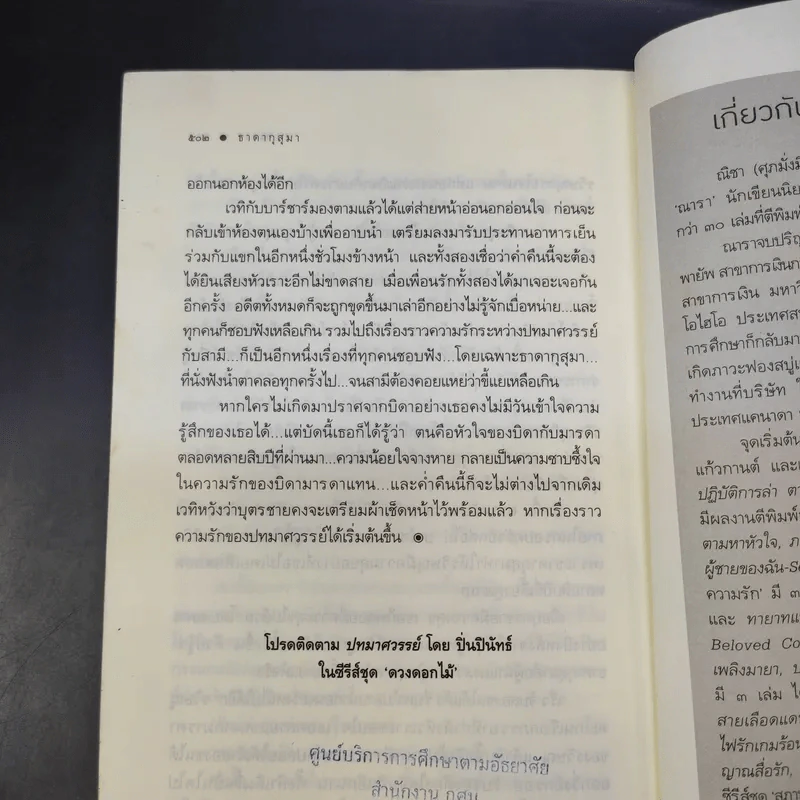 ๕๐๒ ● ธาดากุสุมา
ออกนอกห้องได้อีก
เวทิกับบาร์ซาร์มองตามแล้วได้แต่ส่ายหน้าอ่อนอกอ่อนใจ ก่อนจะ
กลับเข้าห้องตนเองบ้างเพื่ออาบน้ำ เตรียมลงมารับประทานอาหารเย็น
ร่วมกับแขกในอีกหนึ่งชั่วโมงข้างหน้า และทั้งสองเชื่อว่าค่ำคืนนี้จะต้อง
ได้ยินเสียงหัวเราะอีกไม่ขาดสาย เมื่อเพื่อนรักทั้งสองได้มาเจอะเจอกัน
อีกครั้ง อดีตทั้งหมดก็จะถูกขุดขึ้นมาเล่าอีกอย่างไม่รู้จักเบื่อหน่าย...และ
ทุกคนก็ชอบฟังเหลือเกิน รวมไปถึงเรื่องราวความรักระหว่างปทมาศวรรย์
กับสามี...ก็เป็นอีกหนึ่งเรื่องที่ทุกคนชอบฟัง...โดยเฉพาะธาดากุสุมา...
ที่นั่งฟังน้ำตาคลอทุกครั้งไป...จนสามีต้องคอยแหย่ว่าขี้แยเหลือเกิน
หากใครไม่เกิดมาปราศจากบิดาอย่างเธอคงไม่มีวันเข้าใจความ
รู้สึกของเธอได้...แต่บัดนี้เธอก็ได้รู้ว่า ตนคือหัวใจของบิดากับมารดา
ตลอดหลายสิบปีที่ผ่านมา...ความน้อยใจจางหาย กลายเป็นความซาบซึ้งใจ
ในความรักของบิดามารดาแทน...และค่ำคืนนี้ก็จะไม่ต่างไปจากเดิม
เวทิหวังว่าบุตรชายคงจะเตรียมผ้าเช็ดหน้าไว้พร้อมแล้ว หากเรื่องราว
ความรักของปทมาศวรรย์ได้เริ่มต้นขึ้น ◉
โปรดติดตาม ปทมาศวรรย์ โดย ปิ่นปินัทธ์
ในซีรีส์ชุด 'ดวงดอกไม้'
ศูนย์บริการการศึกษาตามอัธยาศัย
สำนักงาน กศน
เกี่ยวกับ
ณิชา (ศุภมั่งมี
'ณารา' นักเขียนนิย
กว่า ๓๐ เล่มที่ตีพิมพ์
ณาราจบปริญ
พายัพ สาขาการเงินกา
สาขาการเงิน มหาวิ
โอไฮโอ ประเทศส
การศึกษาก็กลับมา
เกิดภาวะฟองสบู่
ทำงานที่บริษัท
ประเทศแคนาดา
จุดเริ่มต้น
แก้วกานต์ และ
ปฏิบัติการล่า ตา
มีผลงานตีพิมพ์
ตามหาหัวใจ, ภ
ผู้ชายของฉัน-Se
ความรัก' มี ๓
และ ทายาท
Beloved Co
เพลิงมายา, ป
มี ๓ เล่ม ได้
สายเลือดแดน
ไฟรักเกมร้อน
ญาณสื่อรัก,
ซีรีส์ชุด 'สภา